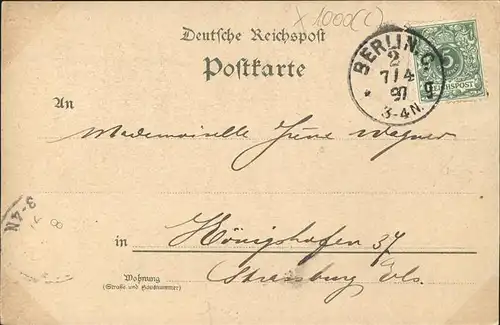 x 1000(C)
Deutsche Reichspost
Postkarte
BERLIN. C
2
7/4
97
3-4N.
g
REICHSPOST
5
An
Mademoiselle Irene Wagner
3-4N
8
in Königshofen 37
Strassburg Els.
Wohnung
(Straße und Hausnummer)